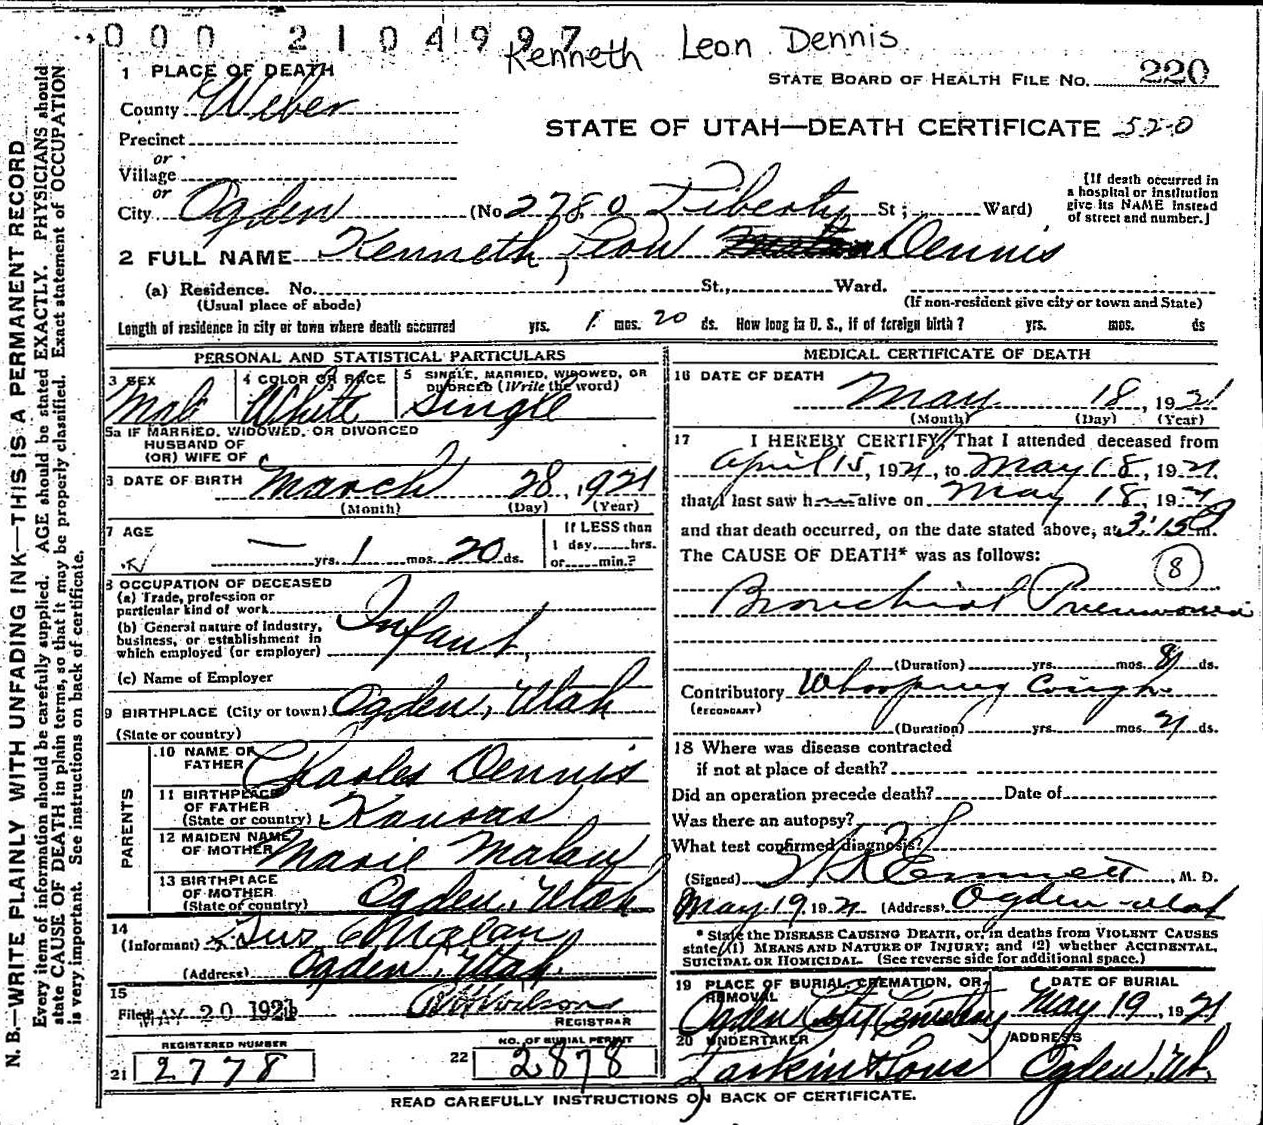 000 2104997
Kenneth Leon Dennis
STATE BOARD OF HEALTH FILE NO. 220
1 PLACE OF DEATH
County Weber
STATE OF UTAH—DEATH CERTIFICATE 520
Precinct
or
Village
or
City Ogden (No 2780 Liberty St; Ward)
[If death occurred in
a hospital or institution
give its NAME instead
of street and number.]
2 FULL NAME Kenneth Leon Dennis
(a) Residence. No. St., Ward.
(Usual place of abode) (If non-resident give city or town and State)
Length of residence in city or town where death occurred yrs. 1 mos. 20 ds. How long in U. S., if of foreign birth? yrs. mos. ds
PERSONAL AND STATISTICAL PARTICULARS
3 SEX Male
4 COLOR OR RACE White
5 SINGLE, MARRIED, WIDOWED, OR
DIVORCED (Write the word)
Single
5a IF MARRIED, WIDOWED, OR DIVORCED
HUSBAND OF
(OR) WIFE OF
6 DATE OF BIRTH March 28, 1921
(Month) (Day) (Year)
7 AGE
— yrs. 1 mos. 20 ds.
If LESS than
1 day hrs.
or min.?
8 OCCUPATION OF DECEASED
(a) Trade, profession or
particular kind of work
(b) General nature of industry,
business, or establishment in
which employed (or employer)
Infant
(c) Name of Employer
9 BIRTHPLACE (City or town) Ogden, Utah
(State or country)
PARENTS
10 NAME OF
FATHER Charles Dennis
11 BIRTHPLACE
OF FATHER
(State or country) Kansas
12 MAIDEN NAME
OF MOTHER Marie Malan
13 BIRTHPLACE
OF MOTHER
(State or country) Ogden, Utah
14
(Informant) Malan
(Address) Ogden, Utah
15
Filed MAY 20 1921
REGISTRAR
REGISTERED NUMBER
21 2778
NO. OF BURIAL PERMIT
22 2878
MEDICAL CERTIFICATE OF DEATH
16 DATE OF DEATH
May 18, 1921
(Month) (Day) (Year)
17 I HEREBY CERTIFY, That I attended deceased from
April 15, 1921, to May 18, 1921
that I last saw h alive on May 18, 1921
and that death occurred, on the date stated above, at 3:15 P m.
The CAUSE OF DEATH* was as follows:
8
Bronchial Pneumonia
(Duration) yrs. mos. 8 ds.
Contributory Whooping Cough
(SECONDARY)
(Duration) yrs. mos. 21 ds.
18 Where was disease contracted
if not at place of death?
Did an operation precede death? Date of
Was there an autopsy?
What test confirmed diagnosis?
(Signed) M. D.
May 19, 1921 (Address) Ogden Utah
* State the DISEASE CAUSING DEATH, or, in deaths from VIOLENT CAUSES
state (1) MEANS AND NATURE OF INJURY; and (2) whether ACCIDENTAL,
SUICIDAL OR HOMICIDAL. (See reverse side for additional space.)
19 PLACE OF BURIAL, CREMATION, OR
REMOVAL
Ogden City Cemetery
DATE OF BURIAL
May 19, 1921
20 UNDERTAKER
Larkin & Sons
ADDRESS
Ogden, Ut.
READ CAREFULLY INSTRUCTIONS ON BACK OF CERTIFICATE.
N. B.—WRITE PLAINLY WITH UNFADING INK—THIS IS A PERMANENT RECORD
Every item of information should be carefully supplied. AGE should be stated EXACTLY. PHYSICIANS should
state CAUSE OF DEATH in plain terms, so that it may be properly classified. Exact statement of OCCUPATION
is very important. See instructions on back of certificate.